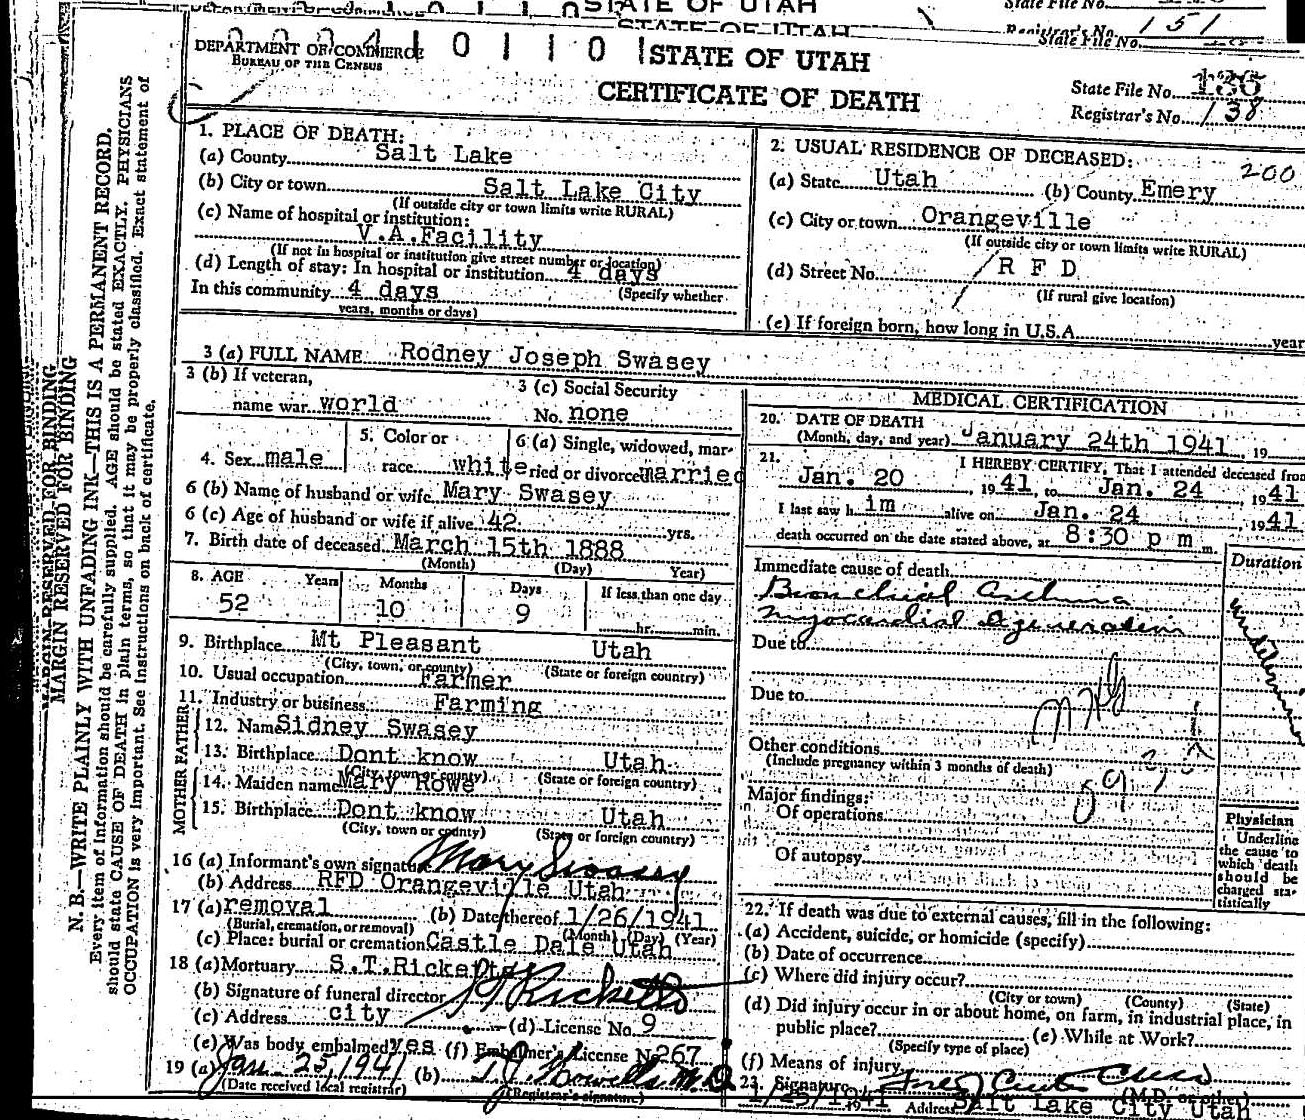 STATE OF UTAH
State File No.
STATE OF UTAH
Registrar's No. 151
State File No.
DEPARTMENT OF COMMERCE
BUREAU OF THE CENSUS
0 1 1 0 1
STATE OF UTAH
CERTIFICATE OF DEATH
State File No. 138
Registrar's No. 138
MARGIN RESERVED FOR BINDING
MARGIN RESERVED FOR BINDING
N. B.—WRITE PLAINLY WITH UNFADING INK—THIS IS A PERMANENT RECORD.
Every item of information should be carefully supplied. AGE should be stated EXACTLY. PHYSICIANS
should state CAUSE OF DEATH in plain terms, so that it may be properly classified. Exact statement of
OCCUPATION is very important. See instructions on back of certificate.
1. PLACE OF DEATH:
(a) County Salt Lake
(b) City or town Salt Lake City
(If outside city or town limits write RURAL)
(c) Name of hospital or institution:
V.A.Facility
(If not in hospital or institution give street number or location)
(d) Length of stay: In hospital or institution 4 days
In this community 4 days (Specify whether
years, months or days)
2. USUAL RESIDENCE OF DECEASED:
200
(a) State Utah (b) County Emery
(c) City or town Orangeville
(If outside city or town limits write RURAL)
(d) Street No. R F D
(If rural give location)
(e) If foreign born, how long in U.S.A. year
3 (a) FULL NAME Rodney Joseph Swasey
3 (b) If veteran,
name war world
3 (c) Social Security
No. none
4. Sex male
5. Color or
race white
6 (a) Single, widowed, mar-
ried or divorced married
6 (b) Name of husband or wife Mary Swasey
6 (c) Age of husband or wife if alive 42 yrs.
7. Birth date of deceased March 15th 1888
(Month) (Day) Year)
8. AGE Years Months Days If less than one day
52 10 9 hr. min.
9. Birthplace Mt Pleasant Utah
(City, town, or county) (State or foreign country)
10. Usual occupation Farmer
11. Industry or business Farming
FATHER
12. Name Sidney Swasey
13. Birthplace Dont know Utah
(City, town or county) (State or foreign country)
MOTHER
14. Maiden name Mary Rowe
15. Birthplace Dont know Utah
(City, town or county) (State or foreign country)
16 (a) Informant's own signature Mary Swasey
(b) Address RFD Orangeville Utah
17 (a) removal (b) Date thereof 1/26/1941
(Burial, cremation, or removal) (Month) (Day) (Year)
(c) Place: burial or cremation Castle Dale Utah
18 (a) Mortuary S.T.Ricketts
(b) Signature of funeral director S T Ricketts
(c) Address city (d) License No. 9
(e) Was body embalmed yes (f) Embalmer's License No 267
19 (a) Jan 25, 1941 (b) T.J. Howells M.D.
(Date received local registrar) (Registrar's signature)
MEDICAL CERTIFICATION
20. DATE OF DEATH
(Month, day, and year) January 24th 1941, 19
21. I HEREBY CERTIFY, That I attended deceased from
Jan. 20, 1941, to Jan. 24, 1941
I last saw h im alive on Jan. 24, 1941
death occurred on the date stated above, at 8:30 p m m.
Immediate cause of death Duration
Bronchial Asthma
Myocardial Degeneration
Due to
Due to
Other conditions
(Include pregnancy within 3 months of death)
Major findings:
Of operations
Of autopsy
Physician
Underline
the cause to
which death
should be
charged sta-
tistically
22. If death was due to external causes, fill in the following:
(a) Accident, suicide, or homicide (specify)
(b) Date of occurrence
(c) Where did injury occur?
(City or town) (County) (State)
(d) Did injury occur in or about home, on farm, in industrial place, in
public place? (e) While at Work?
(Specify type of place)
(f) Means of injury
23. Signature
(M.D. or other)
1/25/1941 19 Address Salt Lake City Utah